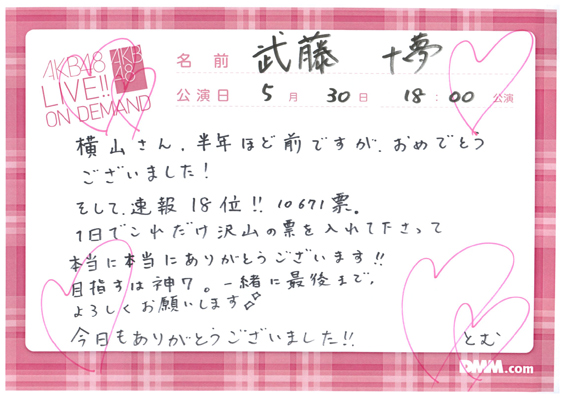 AKB48
LIVE!!
ON DEMAND
AKB
48
名前 武藤 十夢
公演日 5月30日 18:00 公演
横山さん、半年ほど前ですが、おめでとう
ございました!
そして、速報18位!! 10671票。
1日でこれだけ沢山の票を入れて下さって
本当に本当にありがとうございます!!
目指すは神7。一緒に最後まで、
よろしくお願いします
今日もありがとうございました!!
とむ
DMM.com